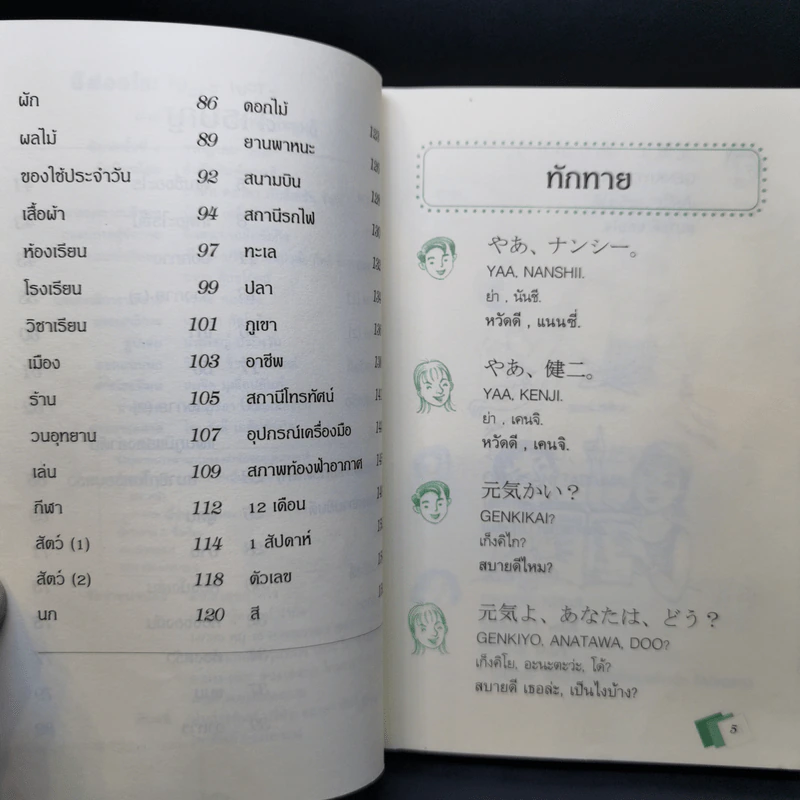 ผัก 86 ดอกไม้
ผลไม้ 89 ยานพาหนะ
ของใช้ประจำวัน 92 สนามบิน
เสื้อผ้า 94 สถานีรถไฟ
ห้องเรียน 97 ทะเล
โรงเรียน 99 ปลา
วิชาเรียน 101 ภูเขา
เมือง 103 อาชีพ
ร้าน 105 สถานีโทรทัศน์
วนอุทยาน 107 อุปกรณ์เครื่องมือ
เล่น 109 สภาพท้องฟ้าอากาศ
กีฬา 112 12 เดือน
สัตว์ (1) 114 1 สัปดาห์
สัตว์ (2) 118 ตัวเลข
นก 120 สี
ทักทาย
やあ、ナンシー。
YAA, NANSHII.
ย่า , นันชี.
หวัดดี , แนนซี่.
やあ、健二。
YAA, KENJI.
ย่า , เคนจิ.
หวัดดี , เคนจิ.
元気かい？
GENKIKAI?
เก็งคิไก?
สบายดีไหม?
元気よ、あなたは、どう？
GENKIYO, ANATAWA, DOO?
เก็งคิโย, อะนะตะว่ะ, โด้?
สบายดี เธอล่ะ, เป็นไงบ้าง?
5